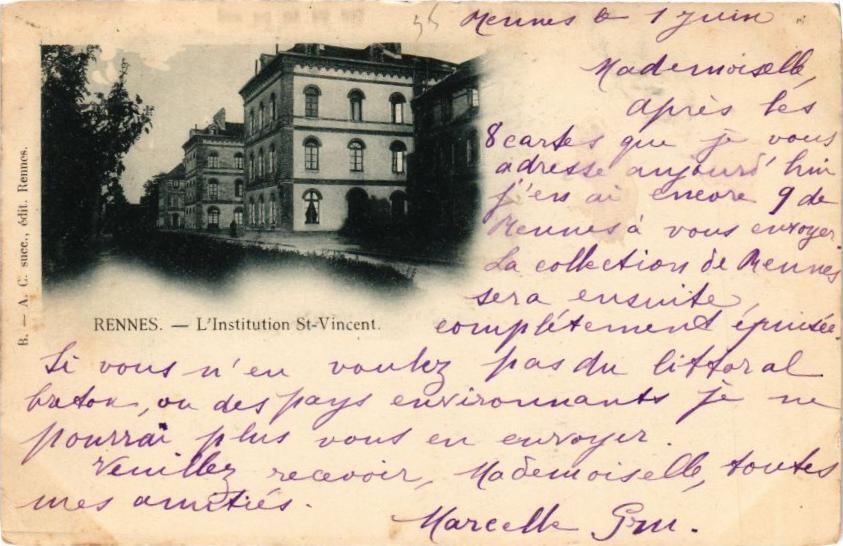 Rennes le 1 Juin
Mademoiselle,
après les
8 cartes que je vous
adresse aujourd'hui
j'en ai encore 9 de
Rennes à vous envoyer.
La collection de Rennes
sera ensuite
complètement épuisée.
Si vous n'en voulez pas du littoral
breton, ou des pays environnants je ne
pourrai plus vous en envoyer.
Veuillez recevoir, Mademoiselle, toutes
mes amitiés.
Marcelle
RENNES. — L'Institution St-Vincent.
B. — A. C. succ., édit. Rennes.